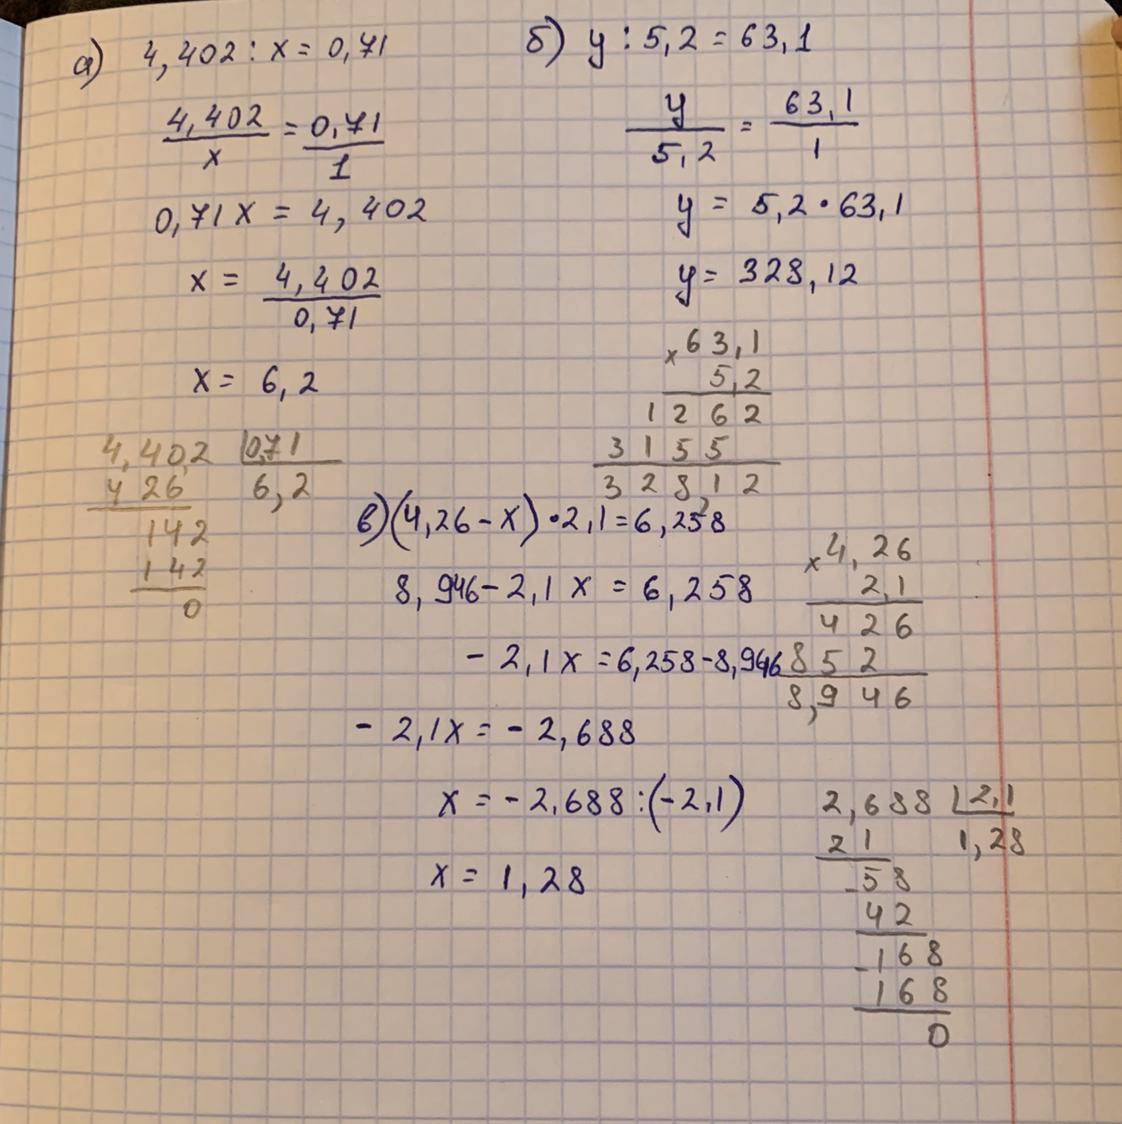 а) 4,402 : x = 0,71
4,402/x = 0,71/1
0,71 x = 4,402
x = 4,402/0,71
x = 6,2
4,40,2 | 0,71
4 26 6,2
142
142
0
б) y : 5,2 = 63,1
y/5,2 = 63,1/1
y = 5,2 · 63,1
y = 328,12
× 63,1
5,2
1 2 6 2
3 1 5 5
3 2 8,1 2
в) (4,26 - x) · 2,1 = 6,258
8,946 - 2,1 x = 6,258
- 2,1 x = 6,258 - 8,946
- 2,1x = - 2,688
x = - 2,688 : (-2,1)
x = 1,28
× 4,26
2,1
4 2 6
8 5 2
8,9 4 6
2,688 | 2,1
2 1 1,28
- 58
42
- 168
168
0